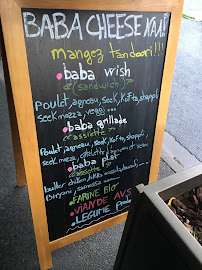 BABA CHEESE NAN!
mangez tandoori!!!
baba wrish
(sandwich)
Poulet, agneau, seek, Kofta, chappli
seek mozza, veggi ...
baba grillade
"assiette"
Poulet, agneau, seek, Kofta, chappli,
seek mozza,
baba plat
"assiette"
butter chicken,
Biryani, samossa
FARINE BIO
VIANDE AVS
LEGUME